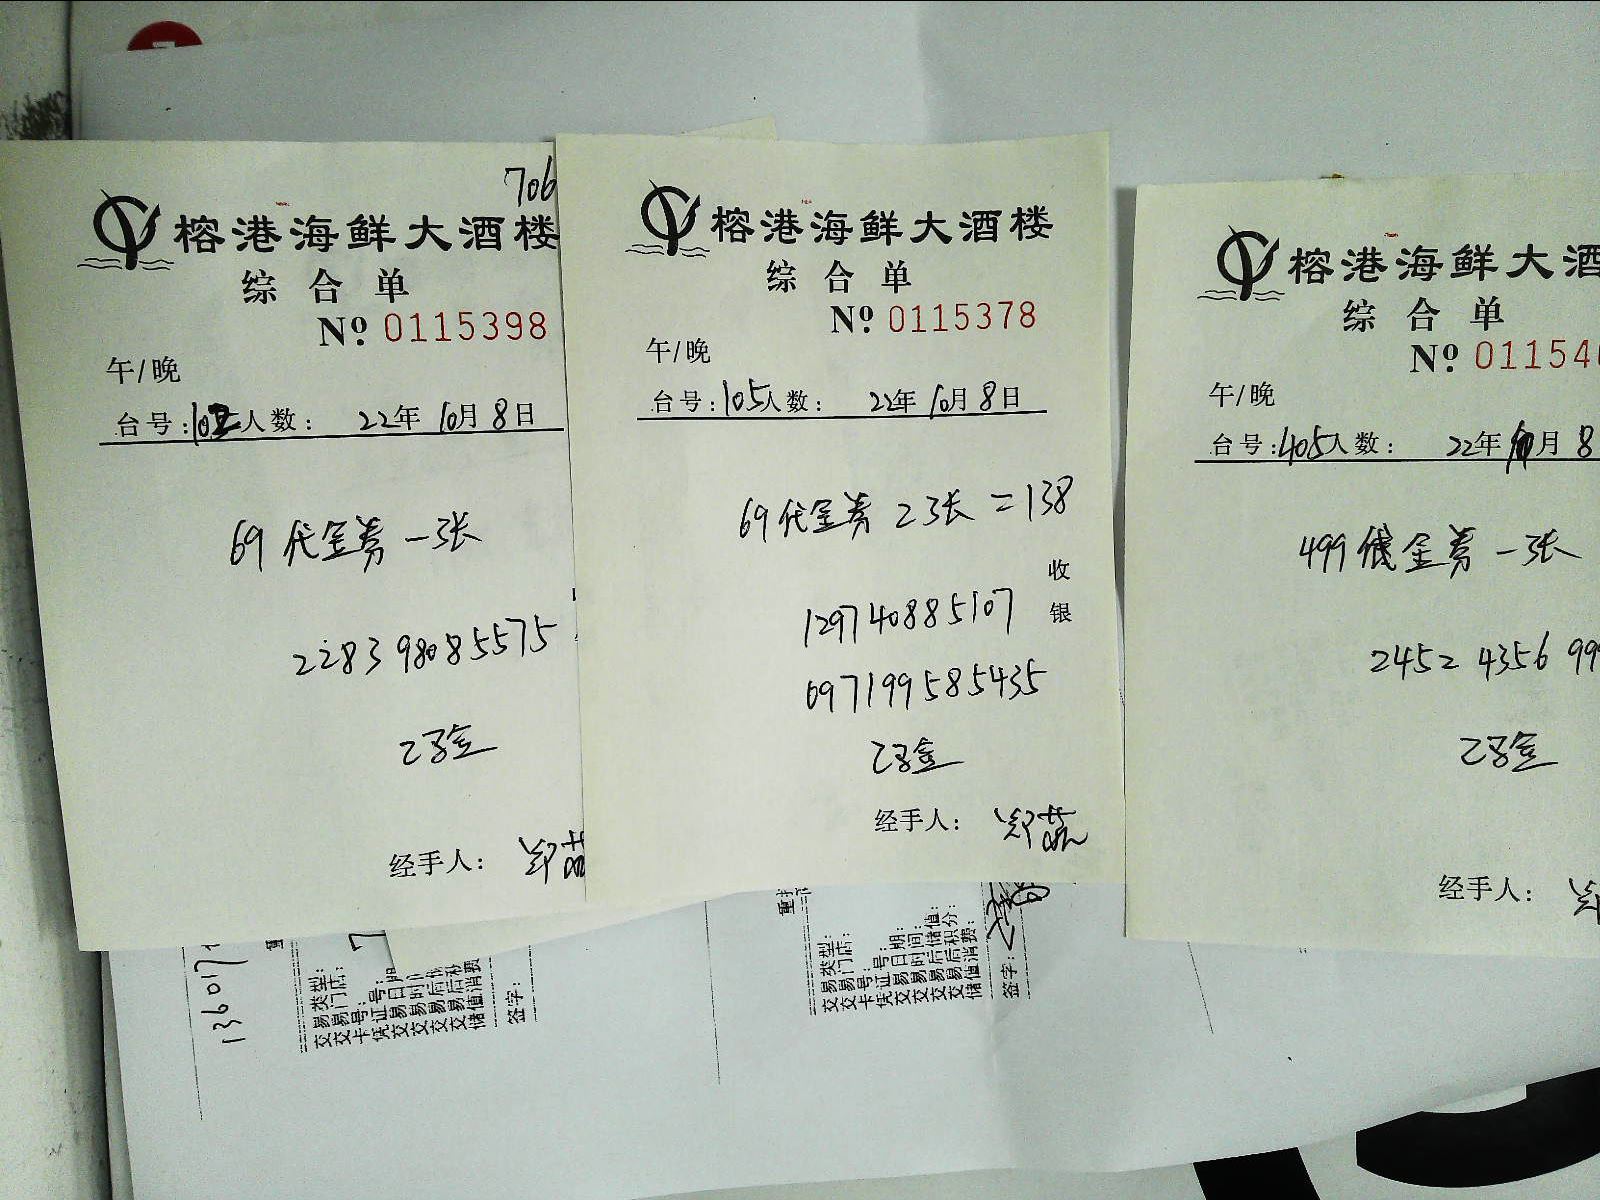 706
榕港海鲜大酒楼
综合单
№ 0115398
午/晚
台号: 人数: 22年10月8日
69代金券一张
228398085575
已验
经手人: 郑
榕港海鲜大酒楼
综合单
№ 0115378
午/晚
台号:105人数: 22年10月8日
69代金券2张=138
收银
129740885107
697199585435
经手人: 郑
榕港海鲜大酒
综合单
№ 01154
午/晚
台号:405人数: 22年10月8
499代金券一张
2452 4356 99
经手人:
136017
交易类型:
交易门店:
卡号:
凭证号:
交易日期
交易时间
交易后
交易后积
储值消费
签字:
交易类型:
交易门店:
卡号:
凭证号:
交易日期:
交易时间:
交易后储值:
交易后积分:
储值消费:
签字: